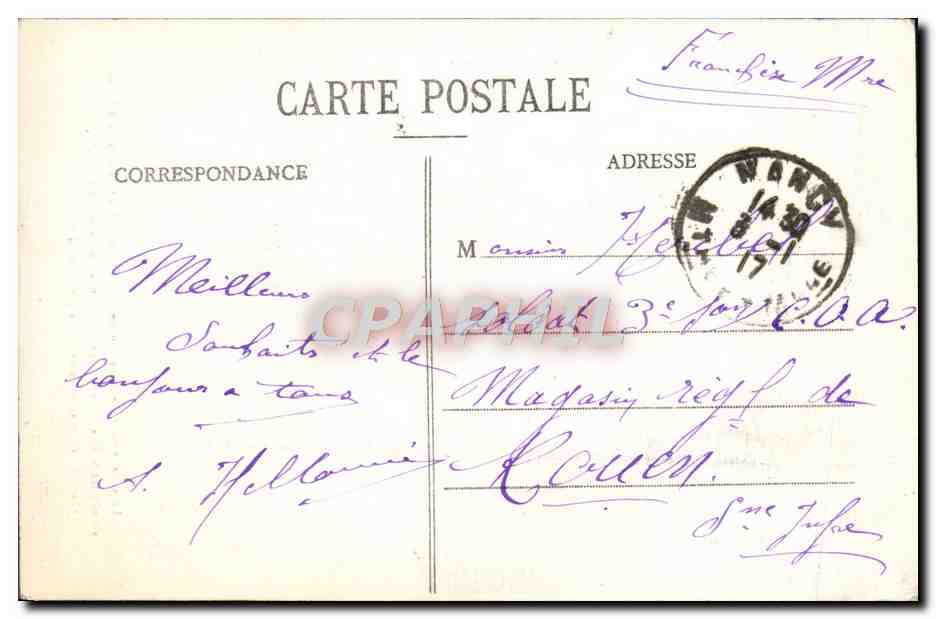 Franchise Mre
CARTE POSTALE
CORRESPONDANCE
ADRESSE
NANCY
14 30
8 -1
17
Meilleurs
Souhaits et le
bonjour a tous
A.
Monsieur
soldat 3e Son C.O.A.
Magasin régl de
Rouen.
Sne Infre
CPAPHIL